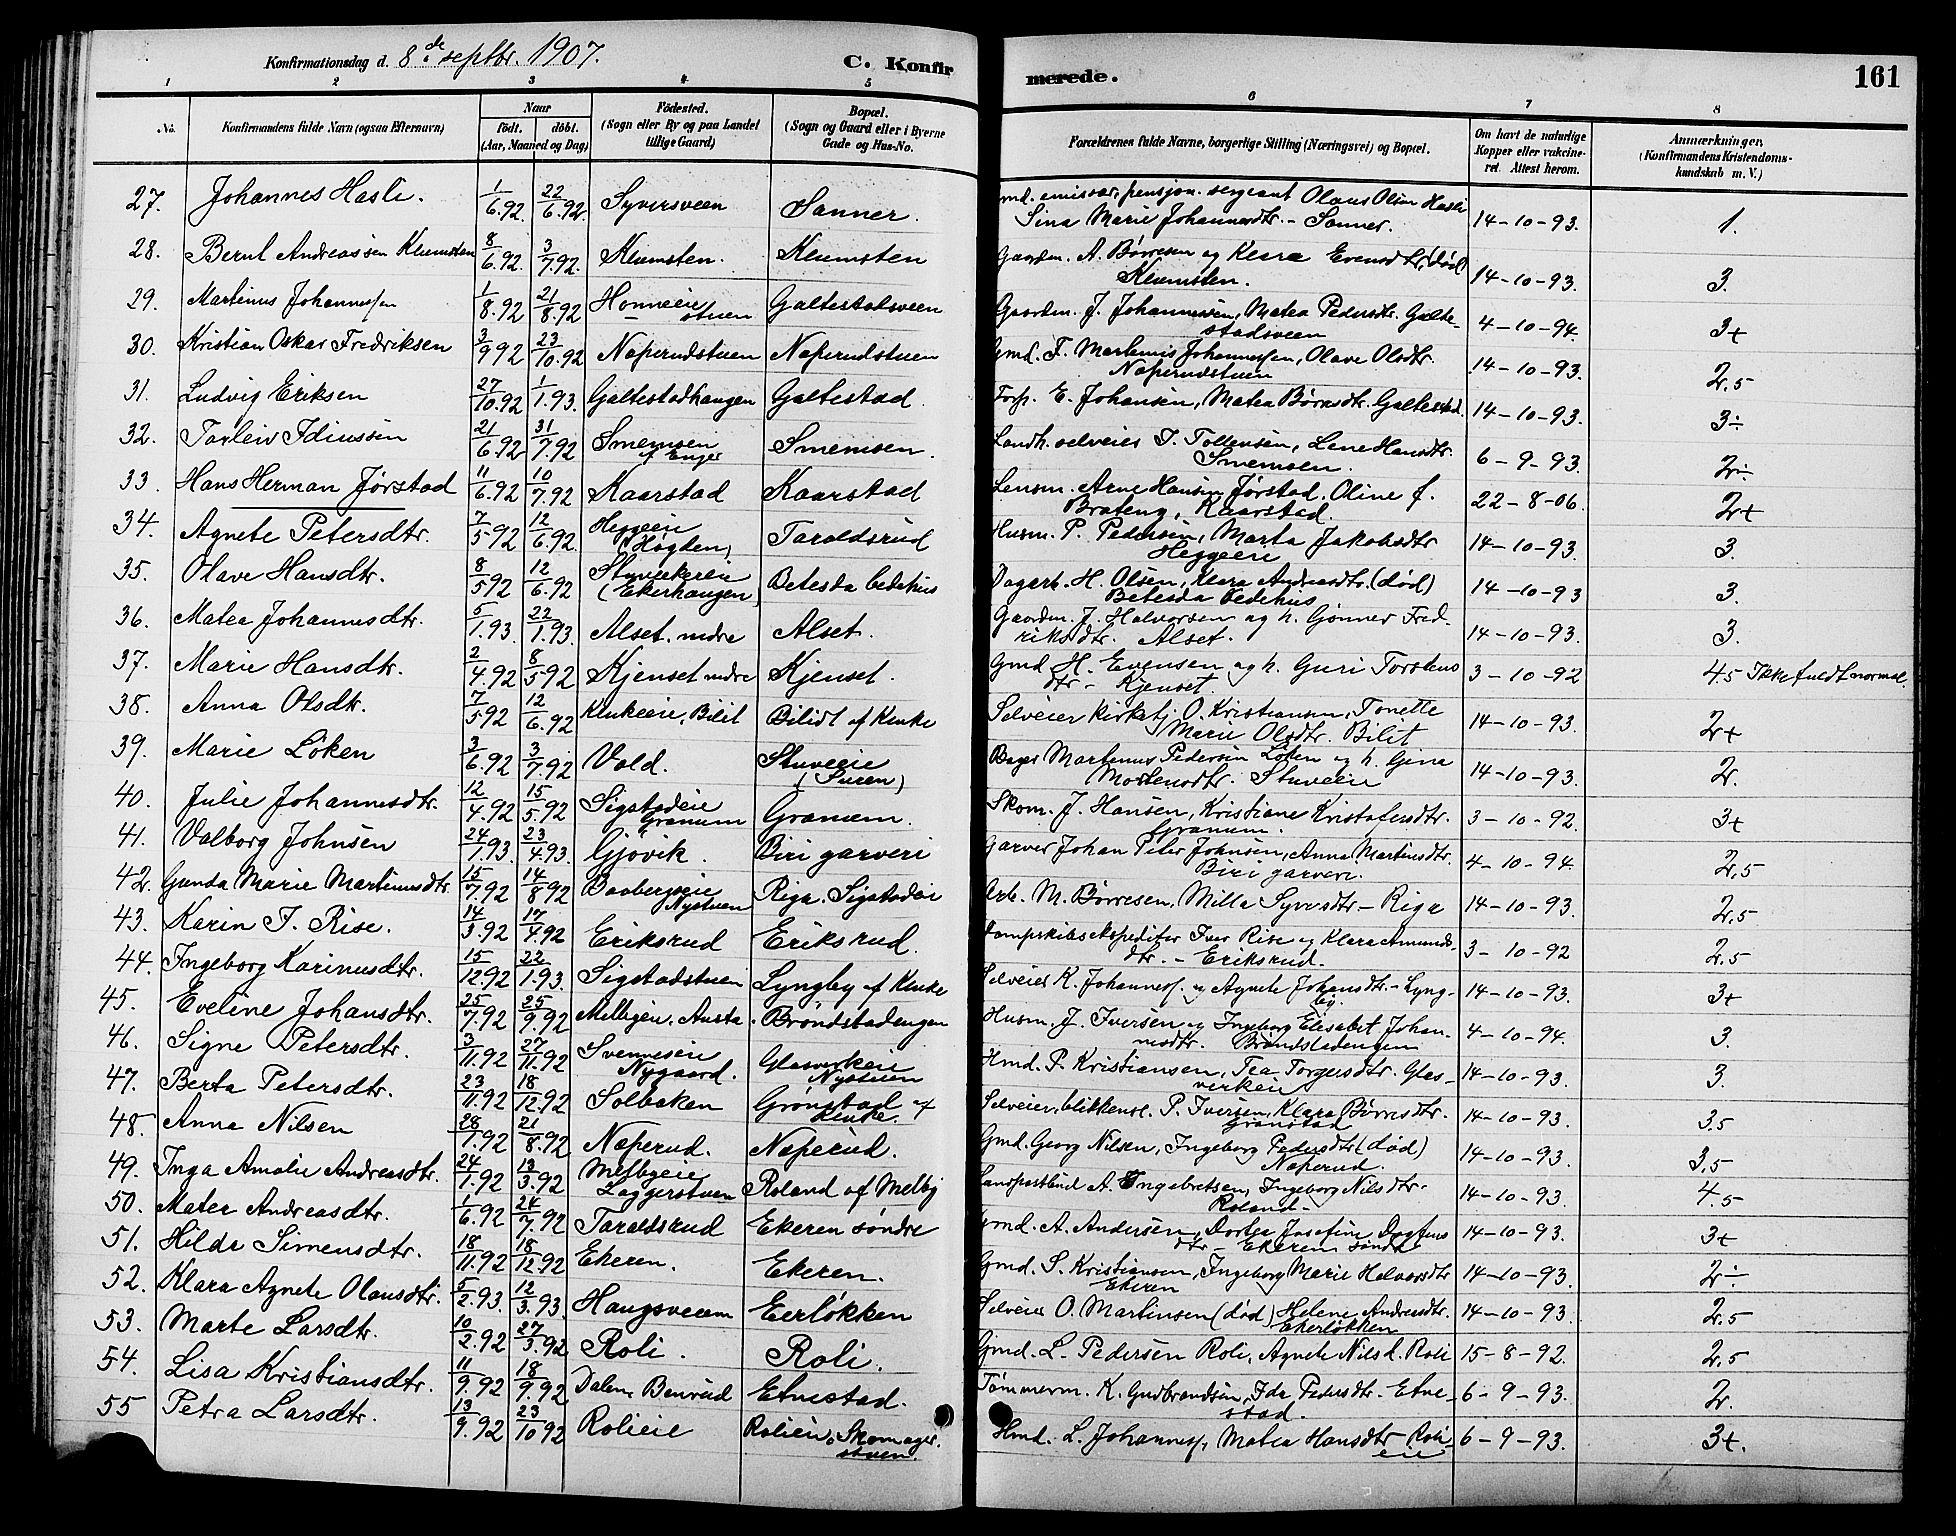 Konfirmationsdag d. 8de septbr. 1907. C. Konfir merede. 161
1 2 3 4 5 6 7 8
No. Konfirmandens fulde Navn (ogsaa Efternavn) Naar født. døbt. (Aar, Maaned og Dag) Fødested. (Sogn eller By og paa Landet tillige Gaard) Bopæl. (Sogn og Gaard eller i Byerne Gade og Hus-No. Forældrenes fulde Navne, borgerlige Stilling (Næringsvei) og Bopæl. Om havt de naturlige Kopper eller vakcineret. Attest herom. Anmærkninger, (Konfirmandens Kristendomskundskab m. V.)
27. Johannes Hasli. 1/6.92. 22/6.92. Syversveen Sanner. Gmd. emissær, pensjon. sergeant Olaus Olsen Hasli Sina Marie Johannesdtr. - Sanner. 14-10-93. 1.
28. Bernt Andreassen Klumsten 8/6.92. 3/7.92. Klumsten. Klumsten Gaardm. A. Børresen og Klara Evensdtr. (død) Klumsten. 14-10-93. 3.
29. Martinus Johannessen 1/8.92 21/8.92 Honneeie stuen Galtestadsveen Gaardm. J. Johannessen, Matea Pedersdtr. Galtestadsveen 4-10-94. 3+
30. Kristian Oskar Fredriksen 3/9 92 23/10.92 Næperudstuen Næperudstuen Gmd. F. Martinius Johannessen, Olave Olsdtr. Næperudstuen 14-10-93. 2,5
31. Ludvig Eriksen 27/10.92 1/1.93. Galtestadhaugen Galtestad. Forp. E. Johansen, Matea Børresdtr. Galtestad. 14-10-93. 3÷
32. Torleiv Idiussen 21/6.92 31/7.92 Smemsen af Enger Smemsen. Landh. selveier I. Tollefsen, Lene Hansdtr. Smemsen. 6-9-93. 2÷
33. Hans Herman Jørstad 11/6.92 10/7.92 Kaarstad Kaarstad Lensm. Arne Hansen Jørstad. Oline f. Brateng, Kaarstad. 22-8-06. 2+
34. Agnete Petersdtr. 7/5 92 12/6.92. Heggeeie (Høgden) Taraldsrud Husm. P. Pedersen, Marta Jakobsdtr Heggeeie 14-10-93. 3.
35. Olave Hansdtr. 8/5 92 12/6.92 Stuveekereie (Ekerhaugen) Betesda bedehus Dagarb. H. Olsen, Klara Andreasdtr. (død) Betesda Bedehus 14-10-93 3.
36. Matea Johannesdtr. 5/1.93. 22/1.93. Alset. nedre Alset. Gaardm. J. Halvorsen og h. Gønner Fredriksdtr. Alset. 14-10-93. 3.
37. Marie Hansdtr. 2/4.92 8/5 92 Kjenset nedre Kjenset. Gmd. H. Evensen og h. Guri Torstensdtr - Kjenset. 3-10-92 4.5 Ikke fuldt normal.
38. Anna Olsdtr. 7/5 92 12/6.92 Klukeeie, Bilit Bilidt af Kluke Selveier kirketj. O. Kristiansen, Tonette Marie Olsdtr. Bilit 14-10-93. 2+
39. Marie Løken 3/6.92 3/7.92 Vold. Stuveeie (Suren) Bager Martinus Pedersen Løken og h. Gina Mortensdtr. Stuveeie 14-10-93. 2.
40. Julie Johannesdtr. 12/4.92 15/5.92 Sigstadeie Granum Granum. Skom. J. Hansen, Kristiane Kristofersdtr. Granum. 3-10-92. 3+
41. Valborg Johnsen 24/1.93. 23/4.93. Gjøvik. Biri garveri Garver Johan Peter Johnsen, Anna Martinsdtr. Biri garveri. 4-10-94. 2,5
42. Gunda Marie Martinusdtr 15/7.92 14/8 92 Baabergseie Nystuen Riga. Sigstadeie Arb. M. Børresen, Milla Syversdtr - Riga 14-10-93. 2,5
43. Karin I. Rise. 14/3.92 17/4.92 Eriksrud Eriksrud. Dampskibsekspeditør Iver Rise og Klara Amundsdtr. - Eriksrud. 3-10-92 2,5
44. Ingeborg Karinusdtr. 15/12.92 22/1.93. Sigstadstuen Lyngby af Kluke Selveier K. Johannesf. og Agnete Johansdtr. - Lyngby. 14-10-93. 3+
45. Eveline Johansdtr. 25/7.92 25/9.92 Melbyeie, Austa. Brøndstadengen Husm. J. Iversen og Ingeborg Elisabet Johannesdtr. Brøndstadengen 4-10-94. 3.
46. Signe Petersdtr. 3/11.92 27/11.92 Svenneseie Nygaard. Glasverkeie Nystuen Hmd. P. Kristiansen, Tea Torgersdtr. Glasverkeie 14-10-93. 3.
47. Berta Petersdtr. 23/11.92 18/12.92 Solbaken Grønstad af Kluke. Selveier, blikkensl. P. Iversen, Klara Børresdtr. Grønstad 14-10-93. 3.5
48. Anna Nilsen 28/7.92 21/8.92 Næperud. Næperud. Gmd. Georg Nilsen, Ingeborg Pedersdtr (død) Næperud. 14-10-93. 3,5
49. Inga Amalie Andreasdtr. 24/1.92 13/3.92 Melbyeie Laggerstuen Roland af Melby Landpostbud A. Ingebretsen, Ingeborg Nilsdtr. Roland - 14-10-93. 4.5
50. Matea Andreasdtr. 1/6.92 24/7.92 Taraldsrud Ekeren søndre Gmd. A. Andersen, Dortea Josefine Dagfinsdtr - Ekeren søndre 14-10-93. 3+
51. Hilda Simensdtr. 18/11.92 18/12 92 Ekeren. Ekeren. Gmd. S. Kristiansen, Ingeborg Marie Halvorsdtr Ekeren 14-10-93. 2÷
52. Klara Agnete Olausdtr. 5/2.93. 12/3.93. Haugsveen Eerløkken Selveier O. Martinsen (død) Helene Andreasdtr. Ekerløkken 14-10-93. 2,5
53. Marte Larsdtr. 10/2.92 27/3.92 Roli. Roli. Gmd. L. Pedersen Roli, Agnete Nilsd. Roli 15-8-92. 2,5
54. Lisa Kristiansdtr. 11/9.92 18/9.92 Dalen, Benrud Etnestad. Tømmerm. K. Gudbrandsen, Ida Pedersdtr. Etnestad. 6-9-93. 2.
55 Petra Larsdtr. 13/9.92 23/10 92 Rolieie Rolieie, Skomagerstuen. Hmd. L. Johannesf, Matea Hansdtr Rolieie 6-9-93. 3+.